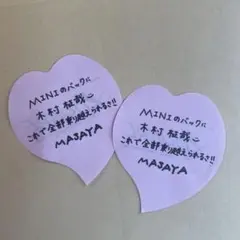 MINIのバックル
木村柾哉
これで全部乗り越えられるさ!!
MASAYA
MINIのバックル
木村柾哉
これで全部乗り越えられるさ!!
MASAYA